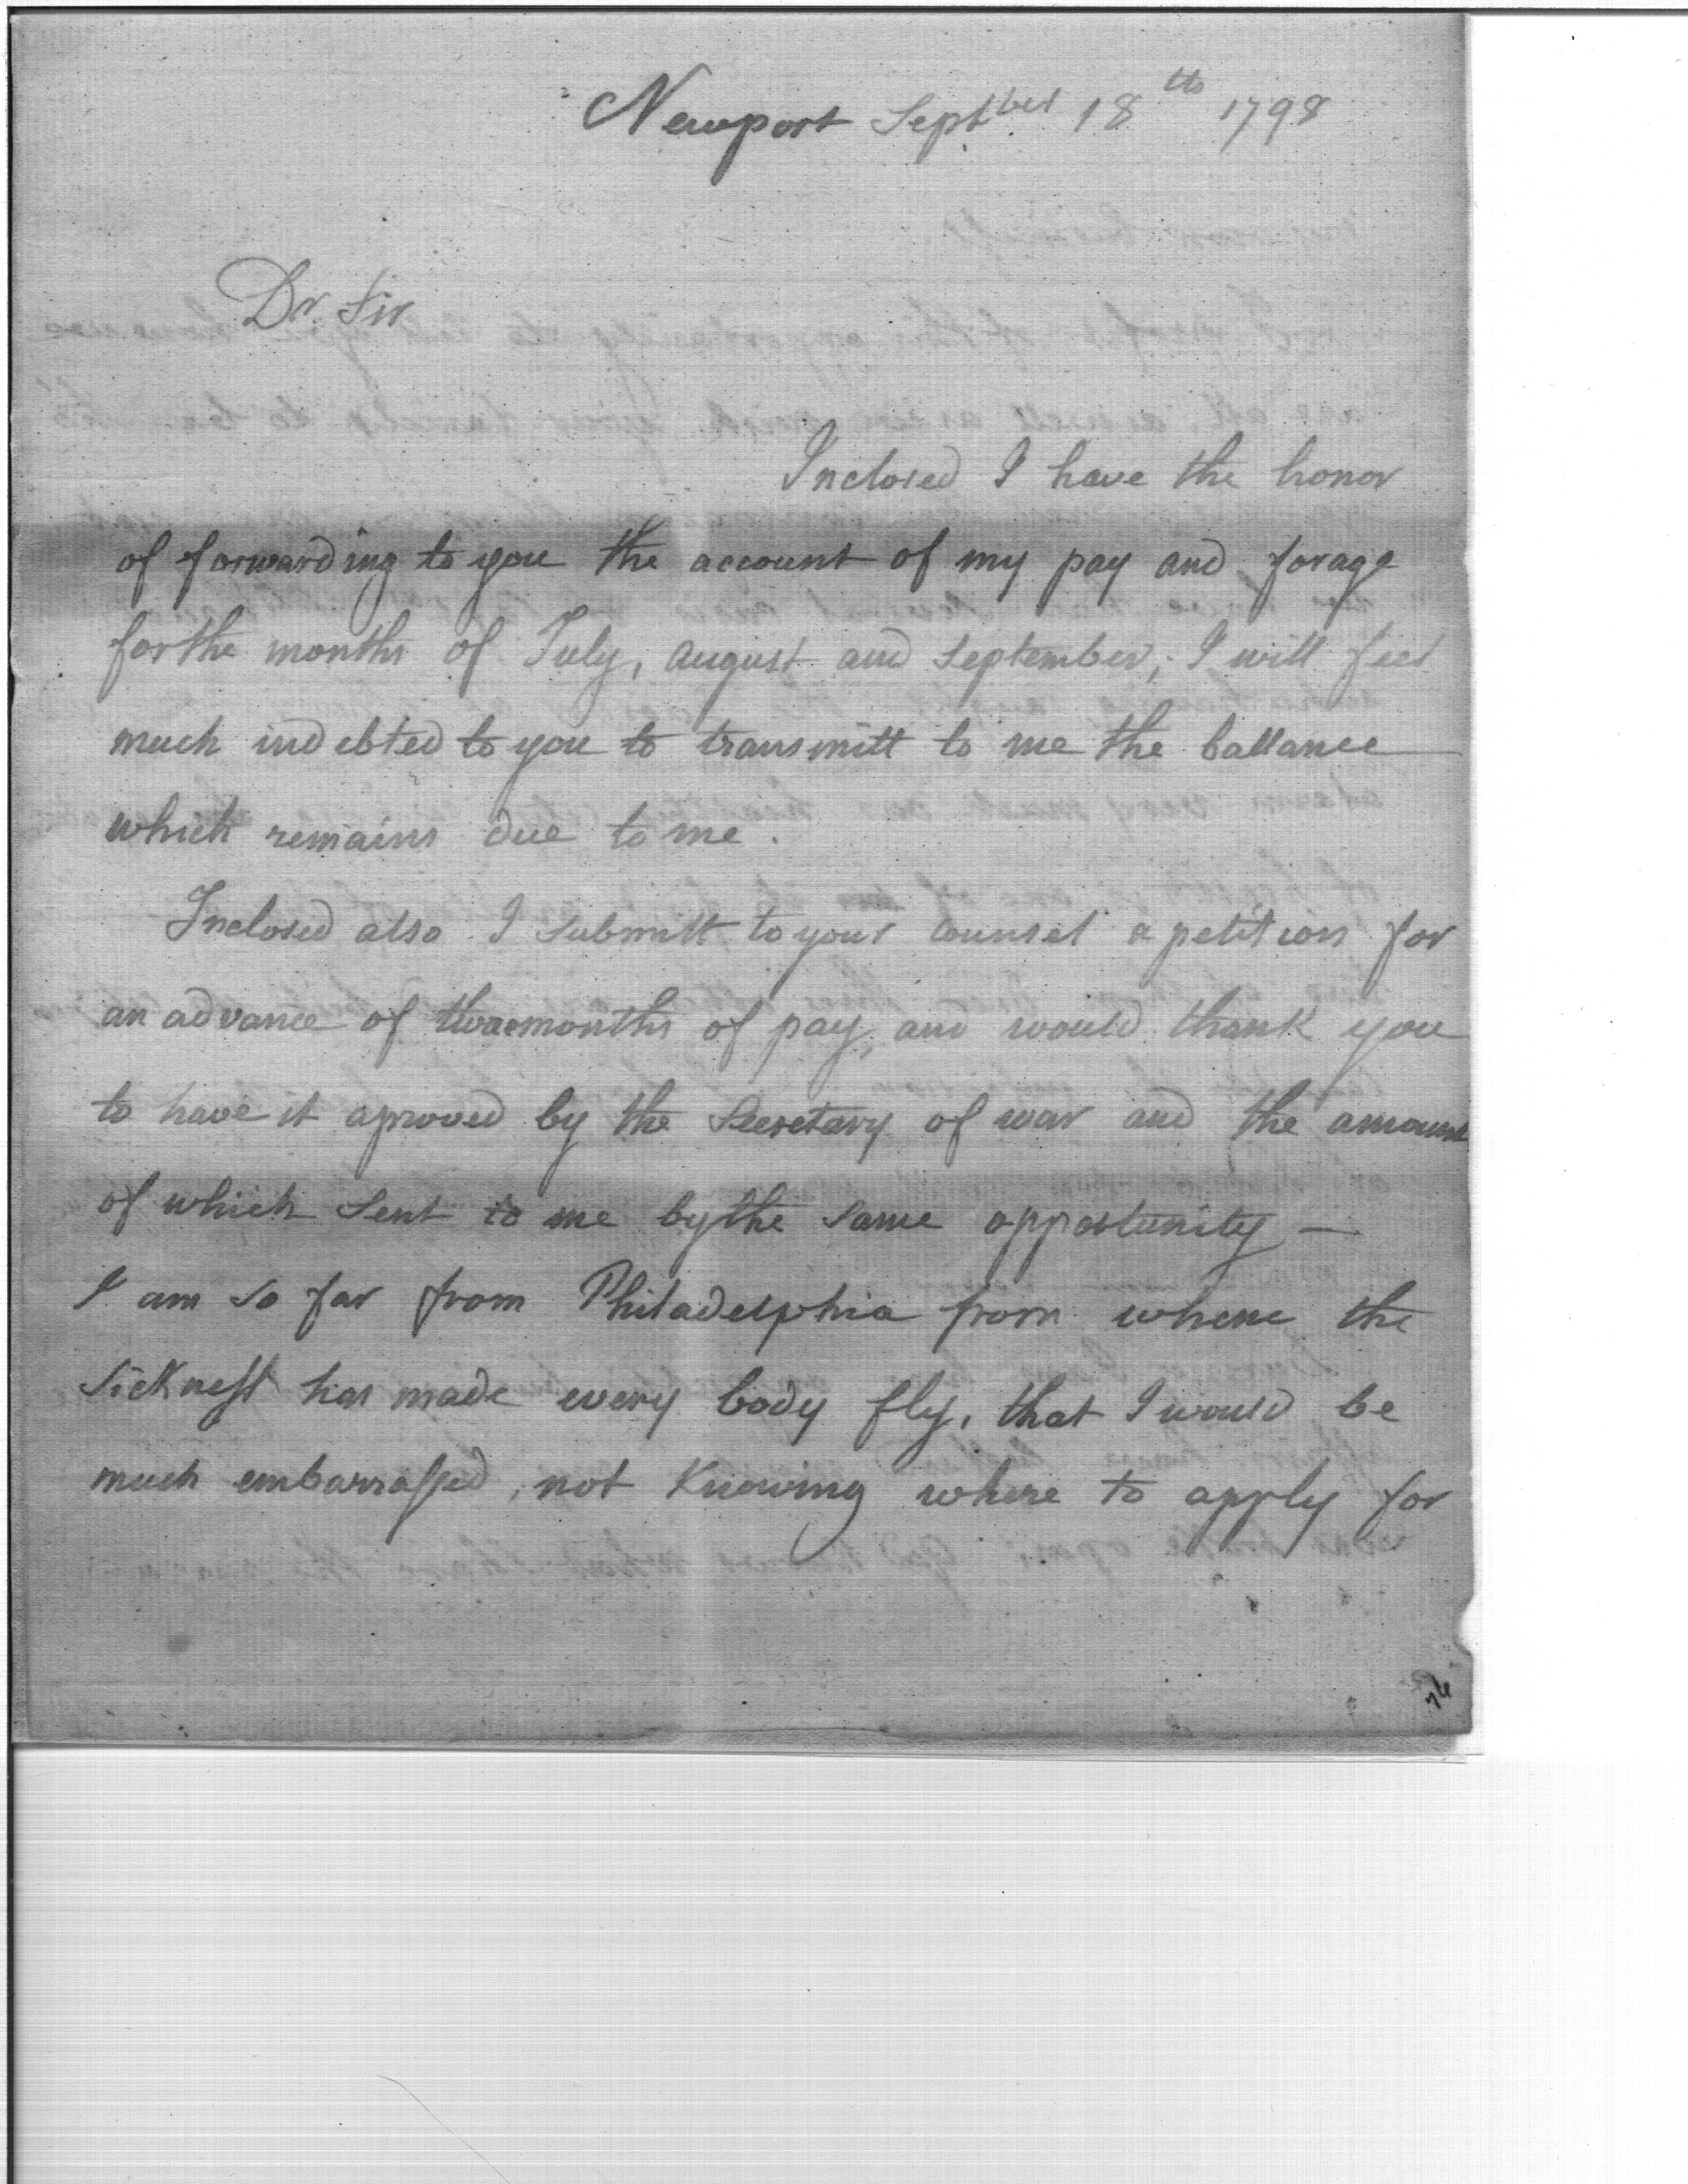 Newport Septber 18th 1798
Dr Sir
Inclosed I have the honor
of forwarding to you the account of my pay and forage
for the months of July, august and September, I will feel
much indebted to you to transmitt to me the ballance
which remains due to me.
Inclosed also I submitt to your counsel a petition for
an advance of months of pay, and would thank you
to have it aproved by the Secretary of war and the amount
of which sent to me by the same opportunity —
I am so far from Philadelphia from whene the
sickness has made every body fly, that I would be
much embarrassed, not Knowing where to apply for